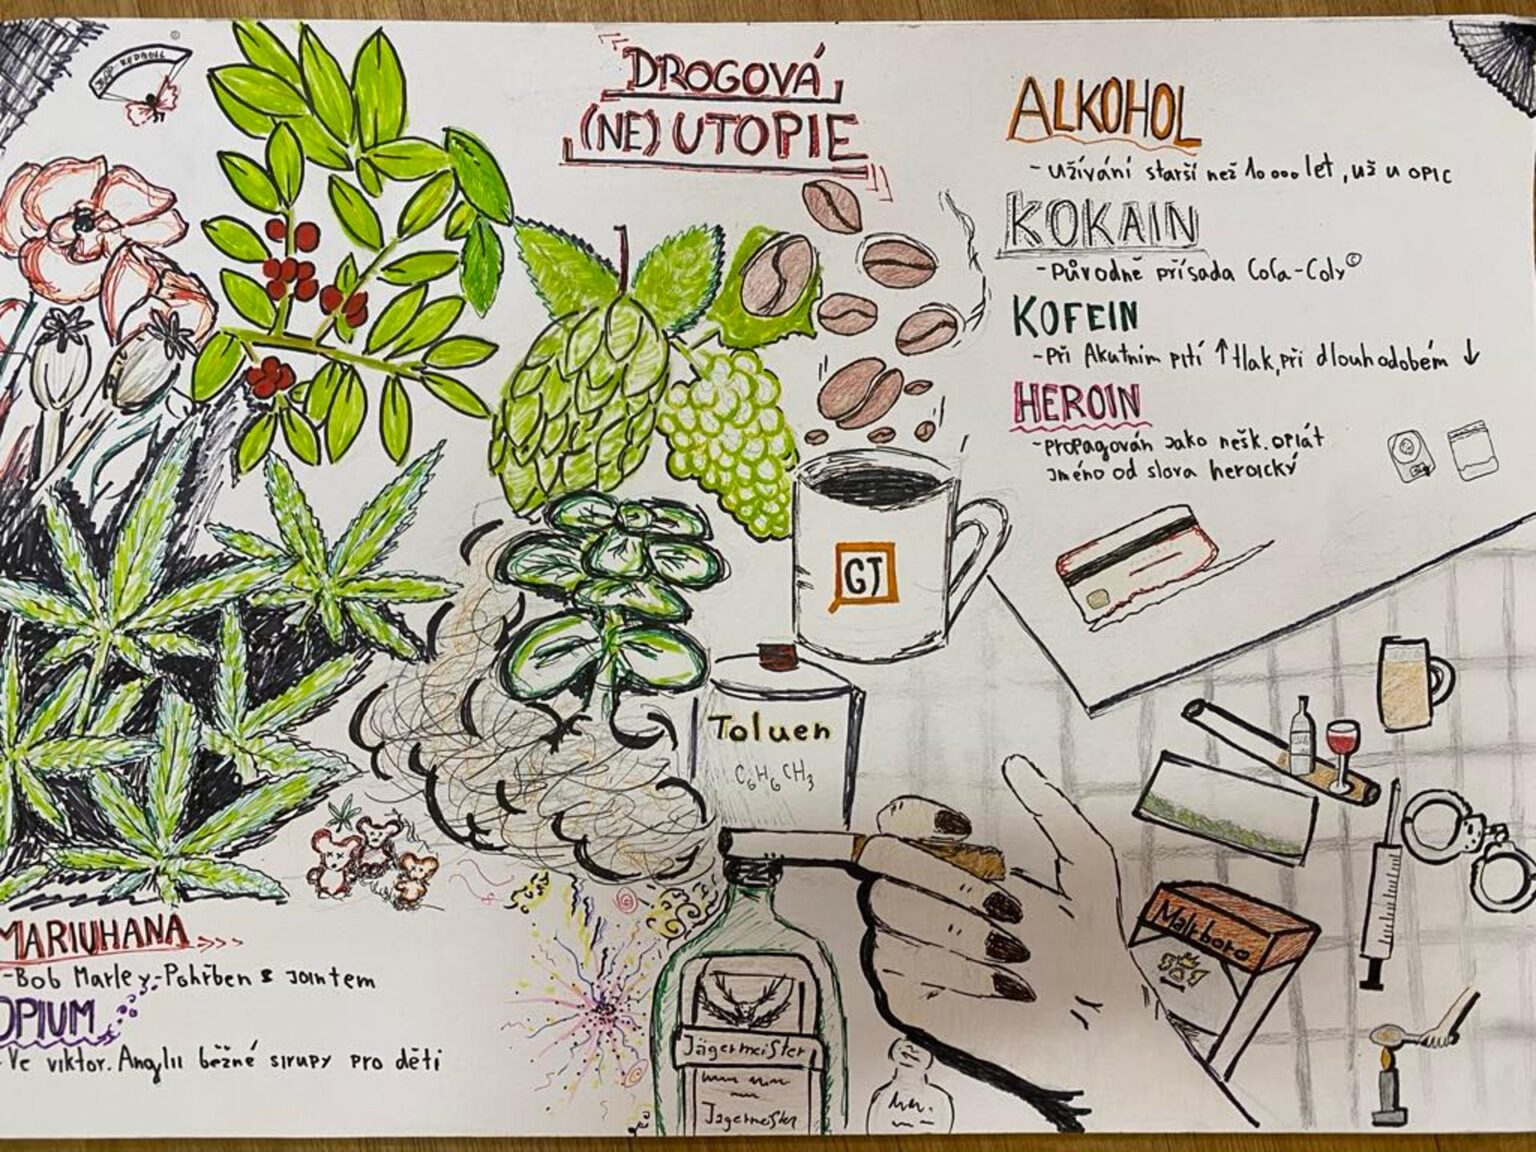 DROGOVÁ
(NE) UTOPIE
ALKOHOL
- užívání starší než 10 000 let, už u opic
KOKAIN
- Původně přísada Coca-Coly©
KOFEIN
- při Akutním pití ↑ tlak, při dlouhodobém ↓
HEROIN
- propagován jako nešk. opiát
Jméno od slova heroický
GJ
Toluen
C6H6CH3
Marlboro
MARIUHANA >>>
- Bob Marley - Pohřben s jointem
OPIUM
- Ve viktor. Anglii běžné sirupy pro děti
Jägermeister
Jägermeister